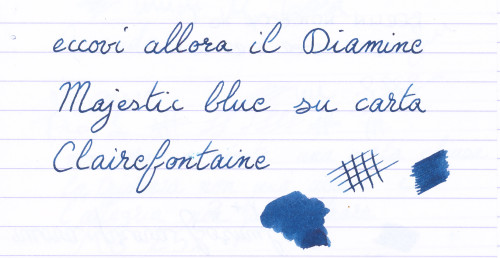 eccovi allora il Diamine
Majestic blue su carta
Clairefontaine